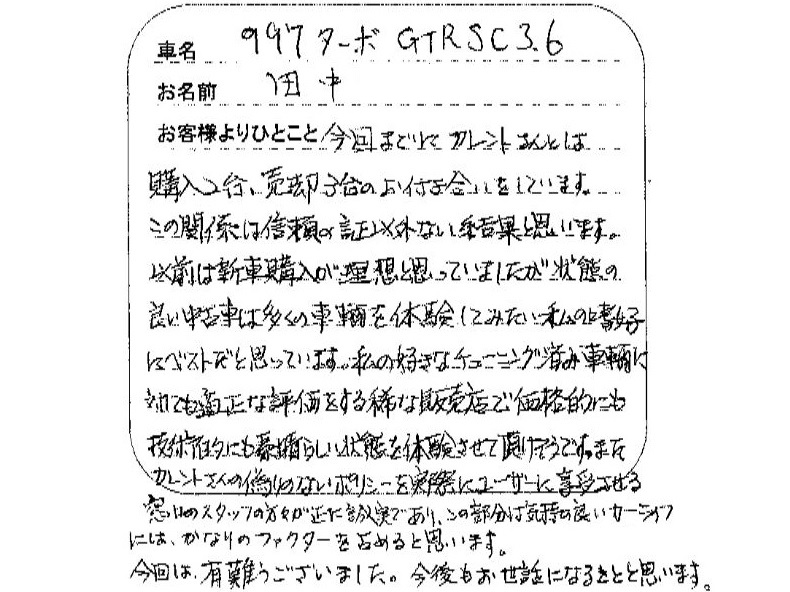 車名 997ターボ GTRSC3.6
お名前 田中
お客様よりひとこと 今回までにて カレントさんとは
購入2台、売却3台のお付き合いをしています。
この関係は信頼の証以外ない結果と思います。
以前は新車購入が理想と思っていましたが状態の
良い中古車は多くの車輌を体験してみたい私の嗜好
にベストだと思っています。私の好きなチューニング済み車輌に
対しても適正な評価をする稀な販売店で価格的にも
技術的にも素晴らしい状態を体験させて頂けそうです。また
カレントさんの偽りのないポリシーを実際にユーザーに享受させる
窓口のスタッフの方々が正に誠実であり、この部分は気持の良いカーライフ
には、かなりのファクターを占めると思います。
今回は、有難うございました。今後もお世話になることと思います。